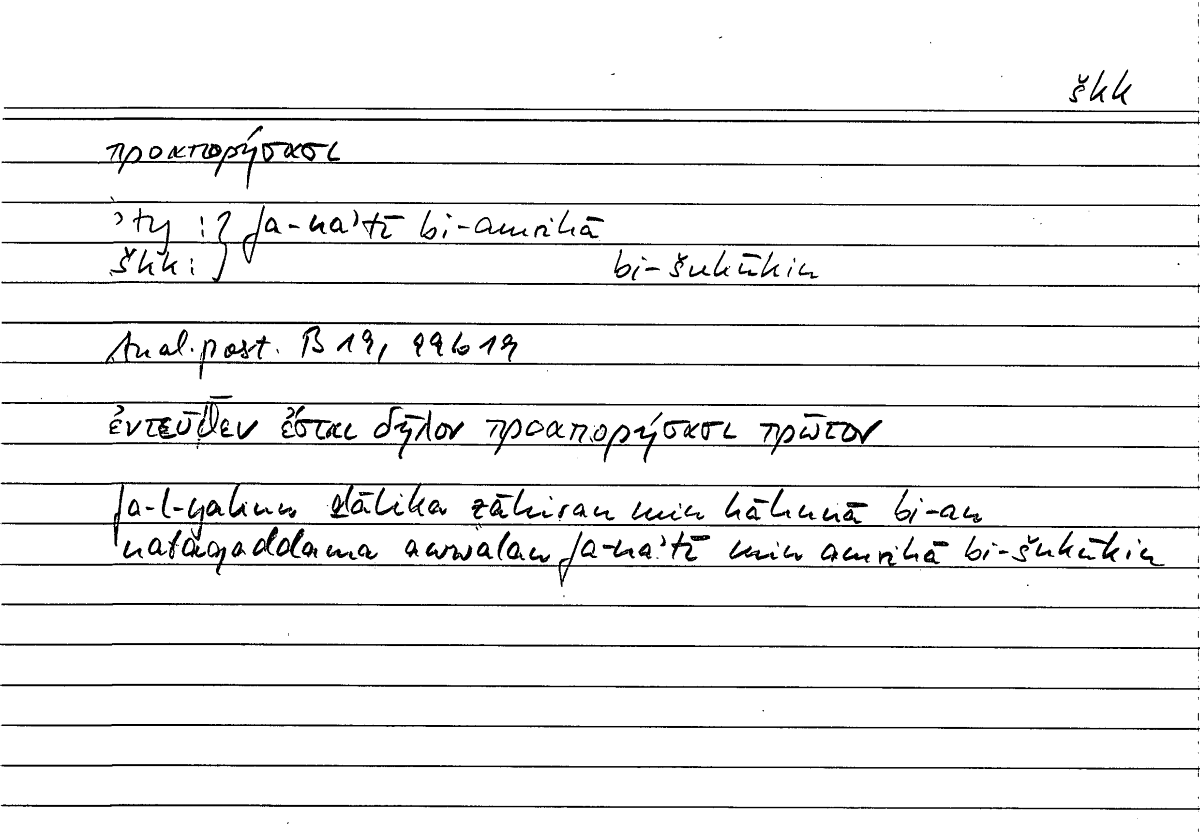 škk
προαπορήσασι
ʾty :} fa-naʾtī bi-amrihā
škk: bi-šukūkin
Anal. post. B 19, 99b19
ἐντεῦθεν ἔσται δῆλον προαπορήσασι πρῶτον
fa-l-yakun ḏālika ẓāhiran min hāhunā bi-an
nataqaddama awwalan fa-naʾtī min amrihā bi-šukūkin